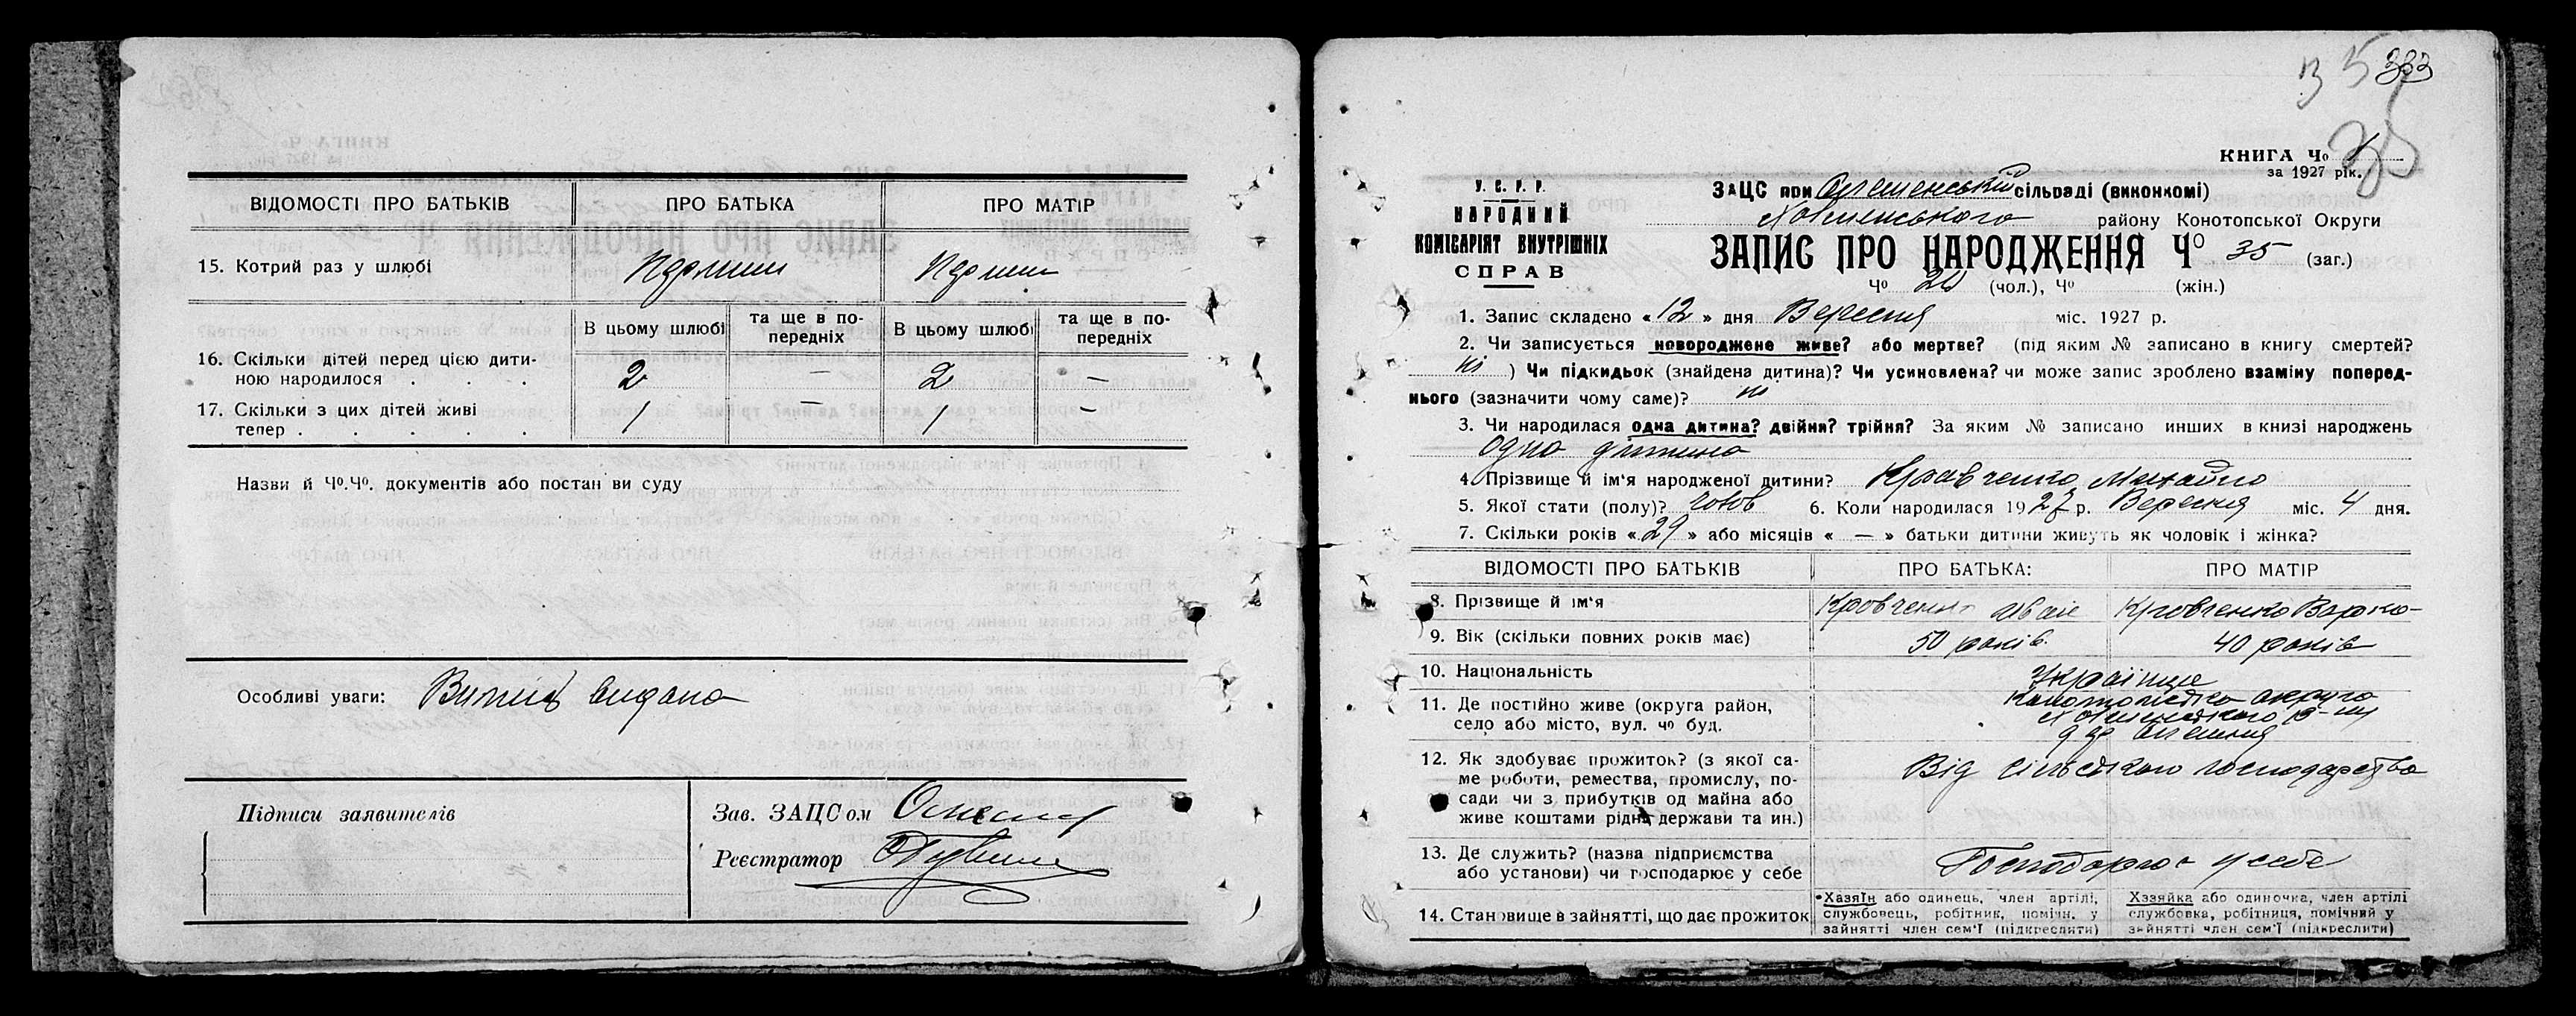 ВІДОМОСТІ ПРО БАТЬКІВ ПРО БАТЬКА ПРО МАТІР
15. Котрий раз у шлюбі
В цьому шлюбі та ще в попередніх В цьому шлюбі та ще в попередніх
16. Скільки дітей перед цією дити-
ною народилося . . . 2 — 2 —
17. Скільки з цих дітей живі
тепер . . . . . 1 — 1 —
Назви й Чо.Чо. документів або постанови суду
Особливі уваги: Витяг видано
Підписи заявителів
Зав. ЗАЦСом
Реєстратор
35 333
35
КНИГА Чо
за 1927 рік.
У. С. Р. Р.
НАРОДНИЙ
КОМІСАРІЯТ ВНУТРІШНІХ
СПРАВ
ЗАЦС при сільраді (виконкомі)
району Конотопської Округи
ЗАПИС ПРО НАРОДЖЕННЯ Чо 35 (заг.)
Чо 20 (чол.), Чо (жін.)
1. Запис складено «12» дня Вересня міс. 1927 р.
2. Чи записується новороджене живе? або мертве? (під яким № записано в книгу смертей?
ні ) Чи підкидьок (знайдена дитина)? Чи усиновлена? чи може запис зроблено взаміну поперед-
нього (зазначити чому саме)? ні
3. Чи народилася одна дитина? двійня? трійня? За яким № записано инших в книзі народжень
одна дитина
4. Прізвище й ім'я народженої дитини? Кравченко Михайло
5. Якої стати (полу)? чолов 6. Коли народилася 1927 р. Вересня міс. 4 дня.
7. Скільки років «29» або місяців «—» батьки дитини живуть як чоловік і жінка?
ВІДОМОСТІ ПРО БАТЬКІВ ПРО БАТЬКА: ПРО МАТІР
8. Прізвище й ім'я Кровченко Іван Кровченко Варка
9. Вік (скільки повних років має) 50 років 40 років
10. Національність Українці
11. Де постійно живе (округа район,
село або місто, вул. чо буд. Конотопська округа
12. Як здобуває прожиток? (з якої са-
ме роботи, ремества, промислу, по-
сади чи з прибутків од майна або
живе коштами рідні держави та ин.) Від сільського господарства
13. Де служить? (назва підприємства
або установи) чи господарює у себе Господарює у себе
14. Становище в зайнятті, що дає прожиток
Хазяїн або одинець, член артілі,
службовець, робітник, помічн. у
зайнятті член сем'ї (підкреслити)
Хазяйка або одиночка, член артілі
службовка, робітниця, помічний у
зайнятті член сем'ї (підкреслити)